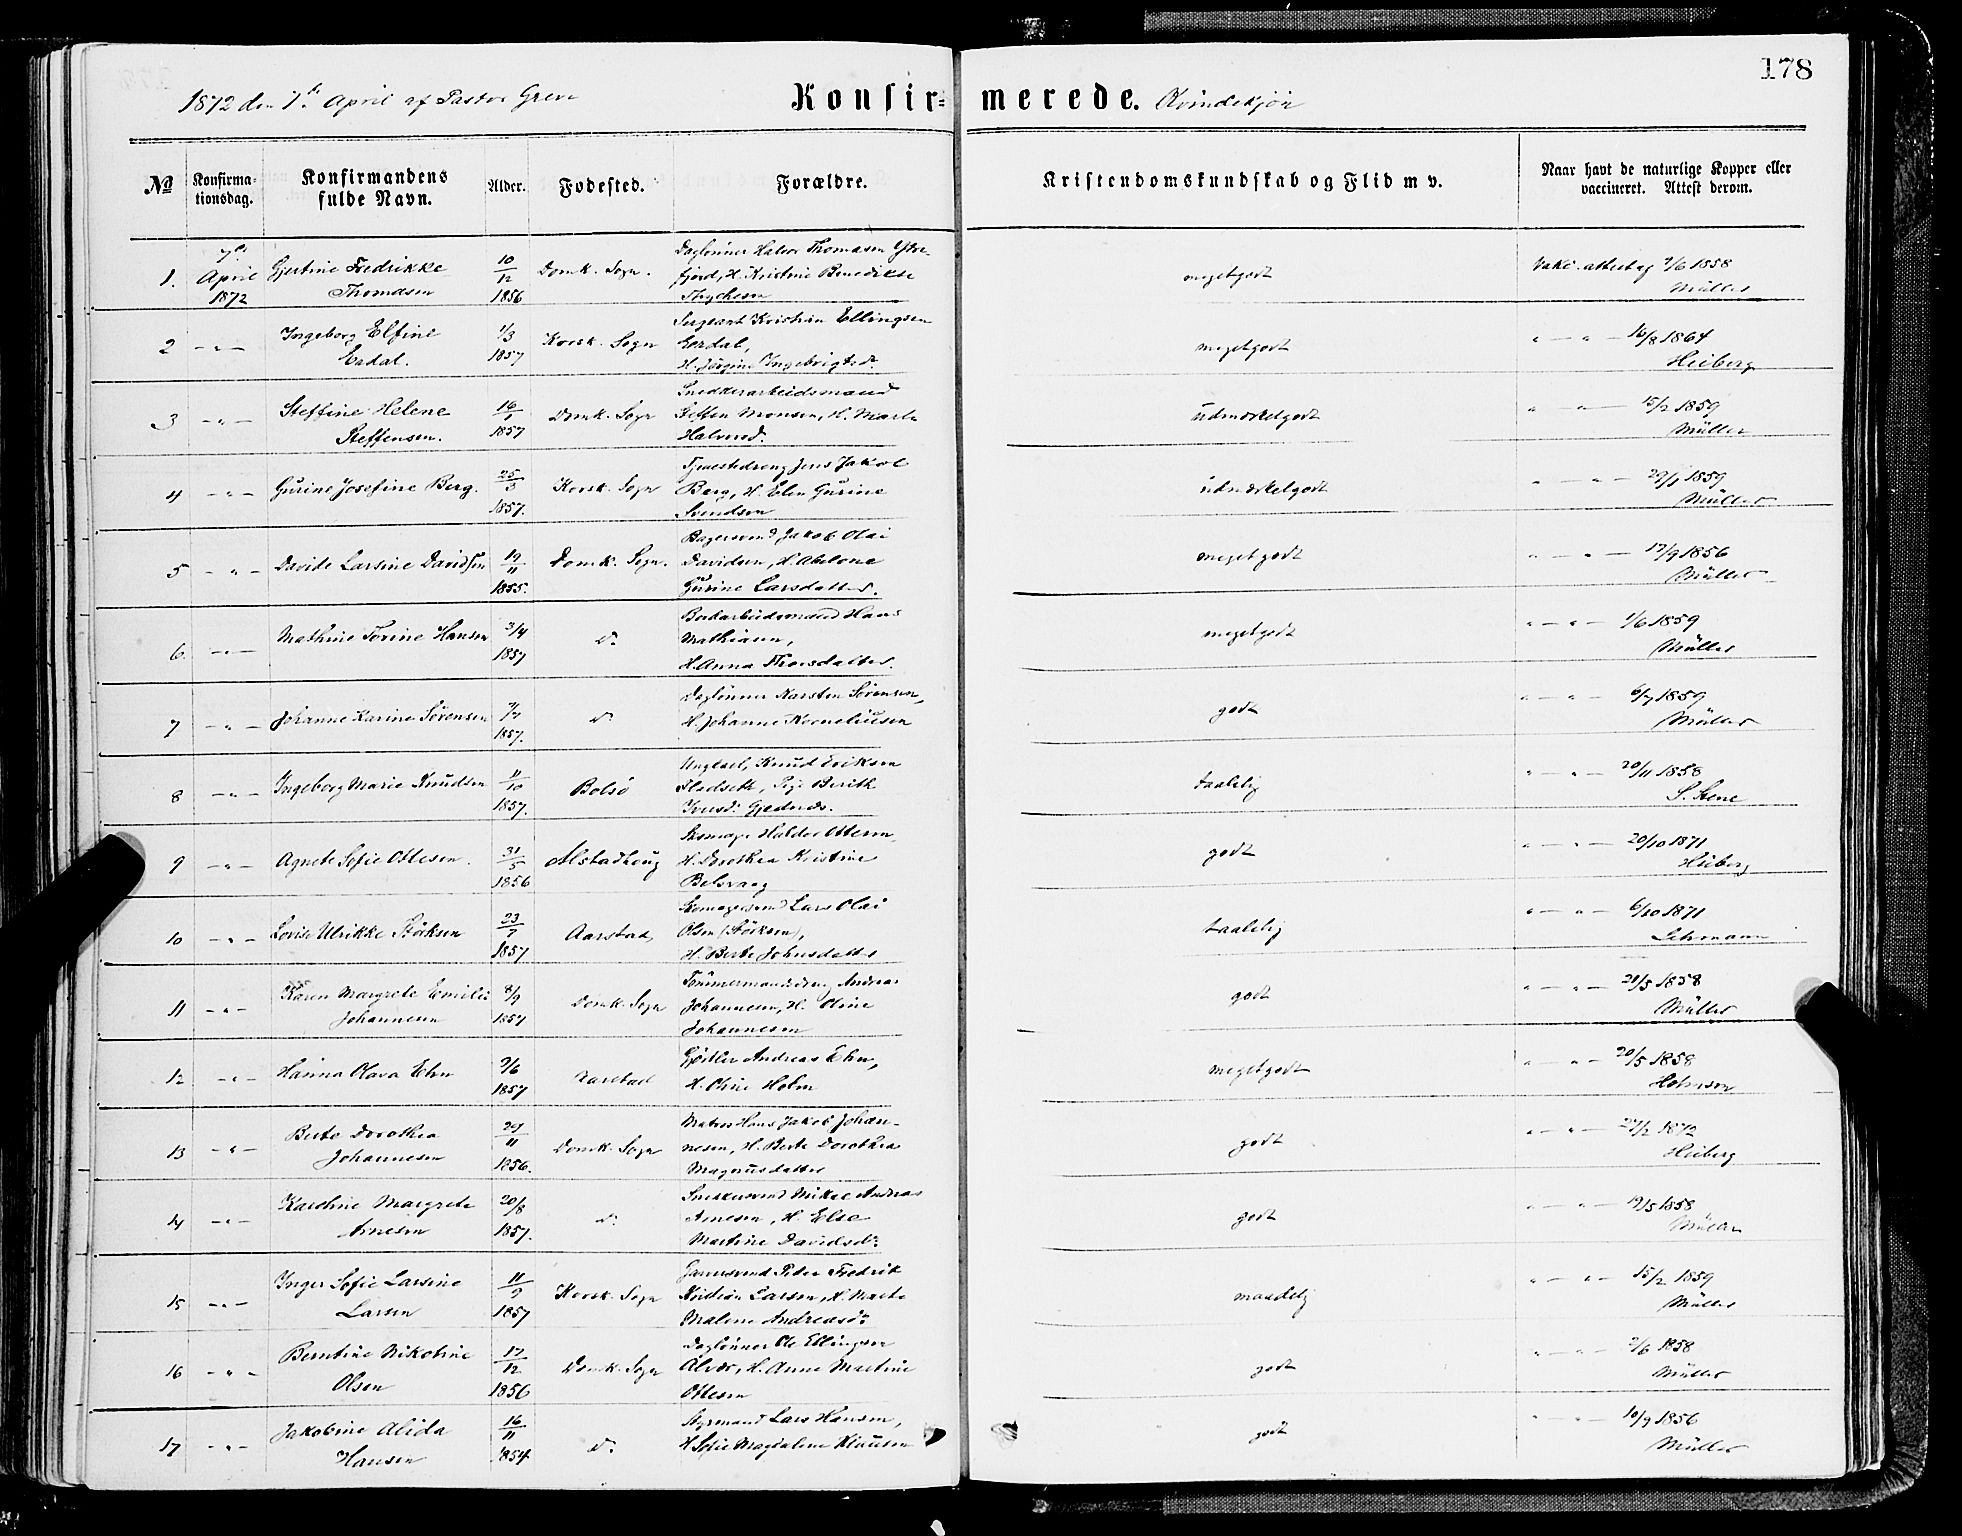 178
1872 den 7de April af Pastor Greve Konfir= merede. Kvindekjøn
No Konfirma- tionsdag. Konfirmandens fulde Navn. Alder. Fødested. Forældre. Kristendomskundskab og Flid m v. Naar havt de naturlige Kopper eller vaccineret. Attest derom.
7de Daglønner Halvor Thomasen
1. April Gjertine Fredrikke 10/12 Domk. Sogn. H. Kristine Benedikte megetgodt Vakc. attest af 2/6 1858
1872 Thomasen 1856 Müller
Sergeant Kristian Ellingsen
2 - " - Ingeborg Elfine 1/3 Korsk. Sogn Erdal, megetgodt " - " - 16/8 1864
Erdal. 1857 H. Jørgine Ingebrigtsdr. Heiberg
Snedkerarbeidsmand
3 - " - Steffine Helene 16/1 Domk. Sogn Steffen Monsen, H. Marte udmærketgodt " - " - 15/2 1859
Steffensen. 1857 Halvorsd. Müller
Jens Jakob
4 - " - Gurine Josefine Berg. 25/3 Korsk. Sogn Berg, H. Elen Gurine udmærketgodt " - " - 29/1 1859
1857. Svendsen Müller
Bagersvend Jakob Olai
5 - " - Davide Larsine Davidsen 19/11 Domk. Sogn. Davidsen, H. Abelone megetgodt " - " - 17/9 1856
1855. Gurine Larsdatter. Müller
Hans
6 - " - Mathine Torine Hansen 3/4 do Mathiasen, megetgodt " - " - 1/6 1859
1857 H. Anna Thorsdatter. Müller
Daglønner Karsten Sørensen,
7 - " - Johanne Karine Sørensen do H. Johanne Korneliusen godt " - " - 6/7 1859
1857. Müller
Ungkarl, Knud Eriksen
8 - " - Ingeborg Marie Knudsen 11/10 Bolsø Pige Berith taalelig " - " - 20/11 1858
1857. Iversdr. S. Stene
Skomager Halder Ottesen
9 - " - Agnete Sofie Ottesen. 31/5 Alstadhoug H. Dorothea Kristine godt " - " - 20/10 1871
1856 Heiberg
Skomagersvend Lars Olai
10 - " - Lovise Ulrikke Størksen 23/7 Aarstad, Olsen (Størksen), taalelig " - " - 6/10 1871
1857 H. Berte Johnsdatter Lehmann
Tømmermandsdreng Andreas
11 - " - Karen Margrete Emilie 8/9 Domk. Sogn Johannesen, H. Oline godt " - " - 21/5 1858
Johannesen 1857 Johannesen Müller
12 - " - Hanna Olava Elm 2/6 Aarstad Gjørtler Andreas Elm, megetgodt " - " - 20/5 1858
1857 H. Oline Holm
Matros Hans Jakob Johan-
13 - " - Berte Dorothea 29/11 Domk. Sogn nesen, H. Berte Dorothea godt " - " - 27/2 1872
Johannesen 1856. Magnusdatter Heiberg
Snekkersvend Mikal Andreas
14 - " - Karoline Margrete 20/8 do Arnesen, H. Else godt " - " - 19/5 1858
Arnesen 1857. Martine Davidsdr. Müller
Garversvend Peder Fredrik
15 - " - Inger Sofie Larsine 11/9 Korsk. Sogn Kristian Larsen, H. Marte maadelig " - " - 15/2 1859
Larsen 1857 Malene Andreasdr. Müller
Daglønner Ole Ellingsen
16 - " - Berntine Nikoline 17/12 Domk. Sogn Alvær, H. Anne Martine godt " - " - 2/6 1858
Olsen 1856 Ottesen Müller
Styrmand Lars Hansen,
17 - " - Jakobine Alida 16/11 do H. Sofie Magdalene Klausen godt " - " - 10/9 1856
Hansen 1854 Müller